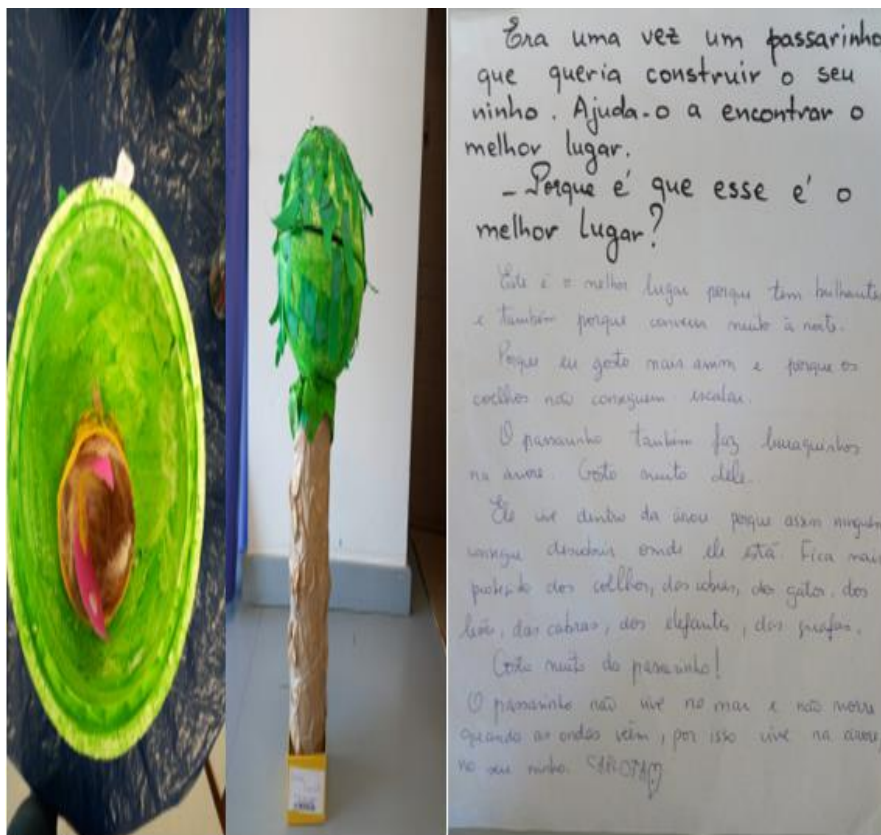 Era uma vez um passarinho
que queria construir o seu
ninho. Ajuda-o a encontrar o
melhor lugar.
- Porque é que esse é o
melhor lugar?
Este é o melhor lugar porque tem brilhantes
e também porque conversa muito à noite.
Porque eu gosto mais assim e porque os
coelhos não conseguem escalar.
O passarinho também faz buraquinhos
na árvore. Gosto muito dele.
Ele vive dentro da árvore porque assim ninguém
consegue descobrir onde ele está. Fica mais
protegido dos coelhos, das cobras, dos gatos, dos
leões, das cabras, dos elefantes, das girafas.
Gosto muito do passarinho!
O passarinho não vive no mar e não morre
quando as ondas vêm, por isso vive na árvore,
no seu ninho. CARLOTA